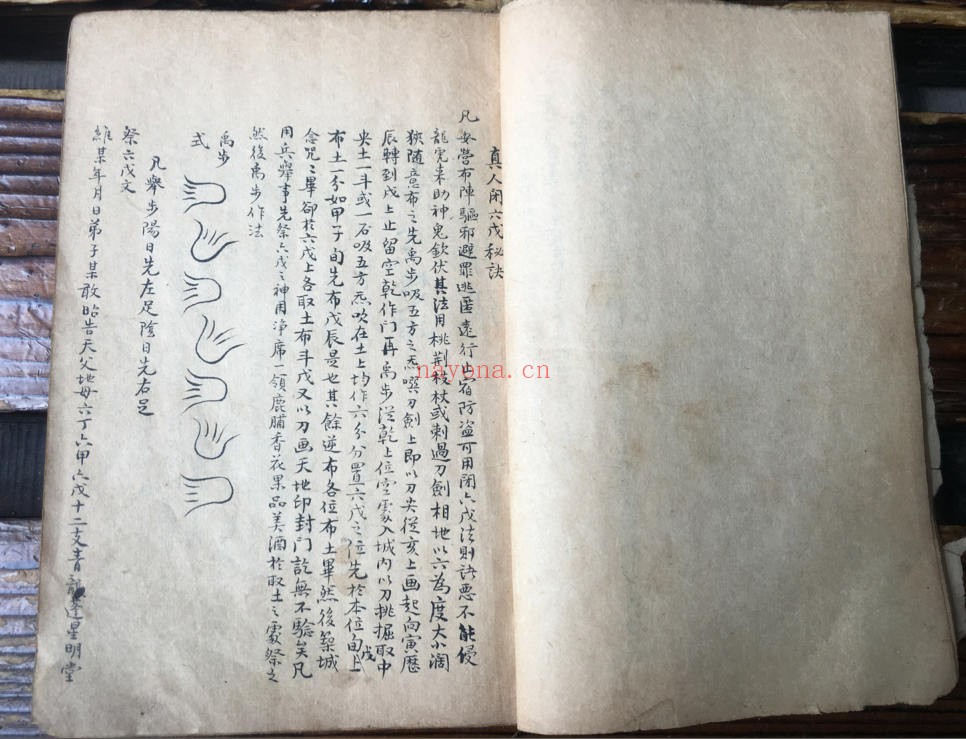 真人閉六戊秘訣
凡安營布陣驅邪避罪逃匿遠行止宿防盜可用閉六戊法則諸惡不能侵
龍虎來助神鬼欽伏其法用桃荆枝杖或刺過刀劍相地以六為度大小濶
狹隨意布之先禹步吸五方之炁噀刀劍上即以刀尖從亥上画起向寅歷
辰轉到戌上止留空乾作門再禹步從乾上位空處入城內以刀挑掘取中
央土一斗或一石吸五方炁吹在土上均作六分分置六戊之位先於本位旬上戊
布土一分如甲子旬先布戊辰是也其餘逆布各位布土畢然後築城
念咒咒畢卻於六戊上各取土布斗戊又以刀画天地印封門訖無不驗矣凡
用兵舉事先祭六戊之神用净席一領鹿脯香花果品美酒於取土之處祭之
然後禹步作法
禹步
式
凡舉步陽日先左足陰日先右足
祭六戊文
維某年月日弟子某敢昭告天父地母六丁六甲六戊十二支青龍逢星明堂
nayona.cn